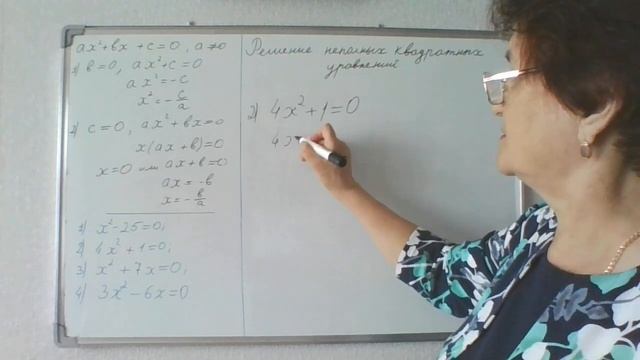 ax²+bx+c=0, a≠0
1) b=0, ax²+c=0
ax²=-c
x²=-c/a
2) c=0, ax²+bx=0
x(ax+b)=0
x=0 или ax+b=0
ax=-b
x=-b/a
1) x²-25=0;
2) 4x²+1=0;
3) x²+7x=0;
4) 3x²-6x=0
Решение неполных квадратных
уравнений
2) 4x²+1=0
4x